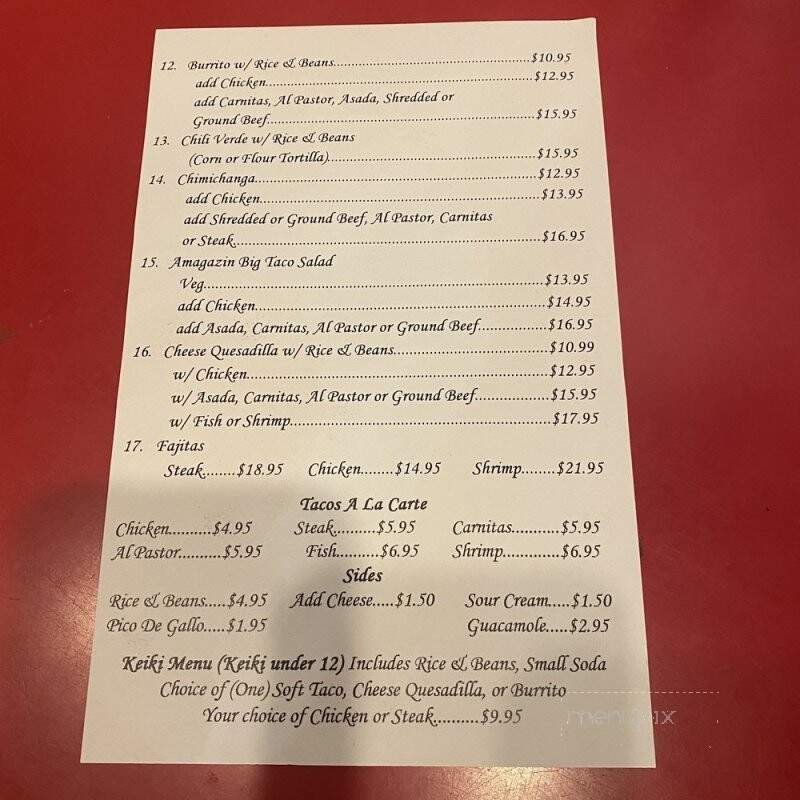 12. Burrito w/ Rice & Beans.....$10.95
add Chicken.....$12.95
add Carnitas, Al Pastor, Asada, Shredded or
Ground Beef.....$15.95
13. Chili Verde w/ Rice & Beans
(Corn or Flour Tortilla).....$15.95
14. Chimichanga.....$12.95
add Chicken.....$13.95
add Shredded or Ground Beef, Al Pastor, Carnitas
or Steak.....$16.95
15. Amagazin Big Taco Salad
Veg.....$13.95
add Chicken.....$14.95
add Asada, Carnitas, Al Pastor or Ground Beef.....$16.95
16. Cheese Quesadilla w/ Rice & Beans.....$10.99
w/ Chicken.....$12.95
w/ Asada, Carnitas, Al Pastor or Ground Beef.....$15.95
w/ Fish or Shrimp.....$17.95
17. Fajitas
Steak........$18.95 Chicken........$14.95 Shrimp........$21.95
Tacos A La Carte
Chicken..........$4.95 Steak..........$5.95 Carnitas...........$5.95
Al Pastor..........$5.95 Fish..........$6.95 Shrimp.............$6.95
Sides
Rice & Beans.....$4.95 Add Cheese.....$1.50 Sour Cream.....$1.50
Pico De Gallo.....$1.95 Guacamole.....$2.95
Keiki Menu (Keiki under 12) Includes Rice & Beans, Small Soda
Choice of (One) Soft Taco, Cheese Quesadilla, or Burrito
Your choice of Chicken or Steak..........$9.95
menupix